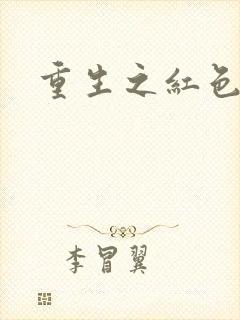 重生之紅色
李冒翼